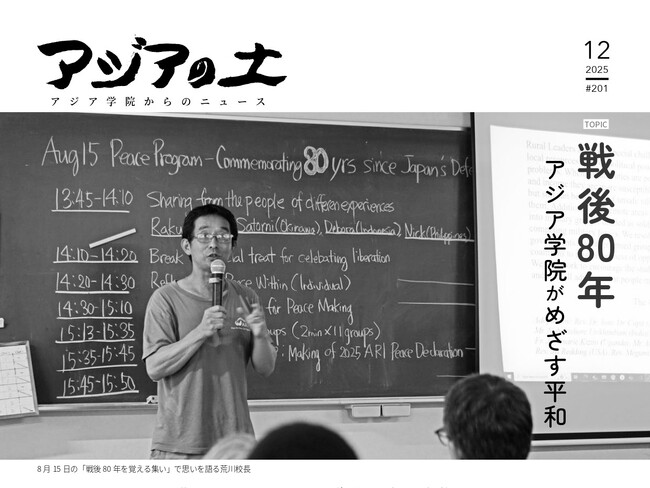 アジアの土
アジア学院からのニュース
12
2025
#201
TOPIC
戦後80年
アジア学院がめざす平和
Aug 15 Peace Program - Commemorating 80 yrs since Japan's Defe
13:45-14:10 Sharing from the people of different experiences
Raku Satomi (Okinawa), Debora (Indonesia), Nick (Philippines)
14:10-14:20 Break al treat for celebrating liberation
14:20-14:30 Refl Peace Within (Individual)
14:30-15:10 for Peace Making
15:13-15:35 oups (2min×11groups)
15:35-15:45 : Making of 2025 ARI Peace Declaration
15:45-15:50
8月15日の「戦後80年を覚える集い」で思いを語る荒川校長